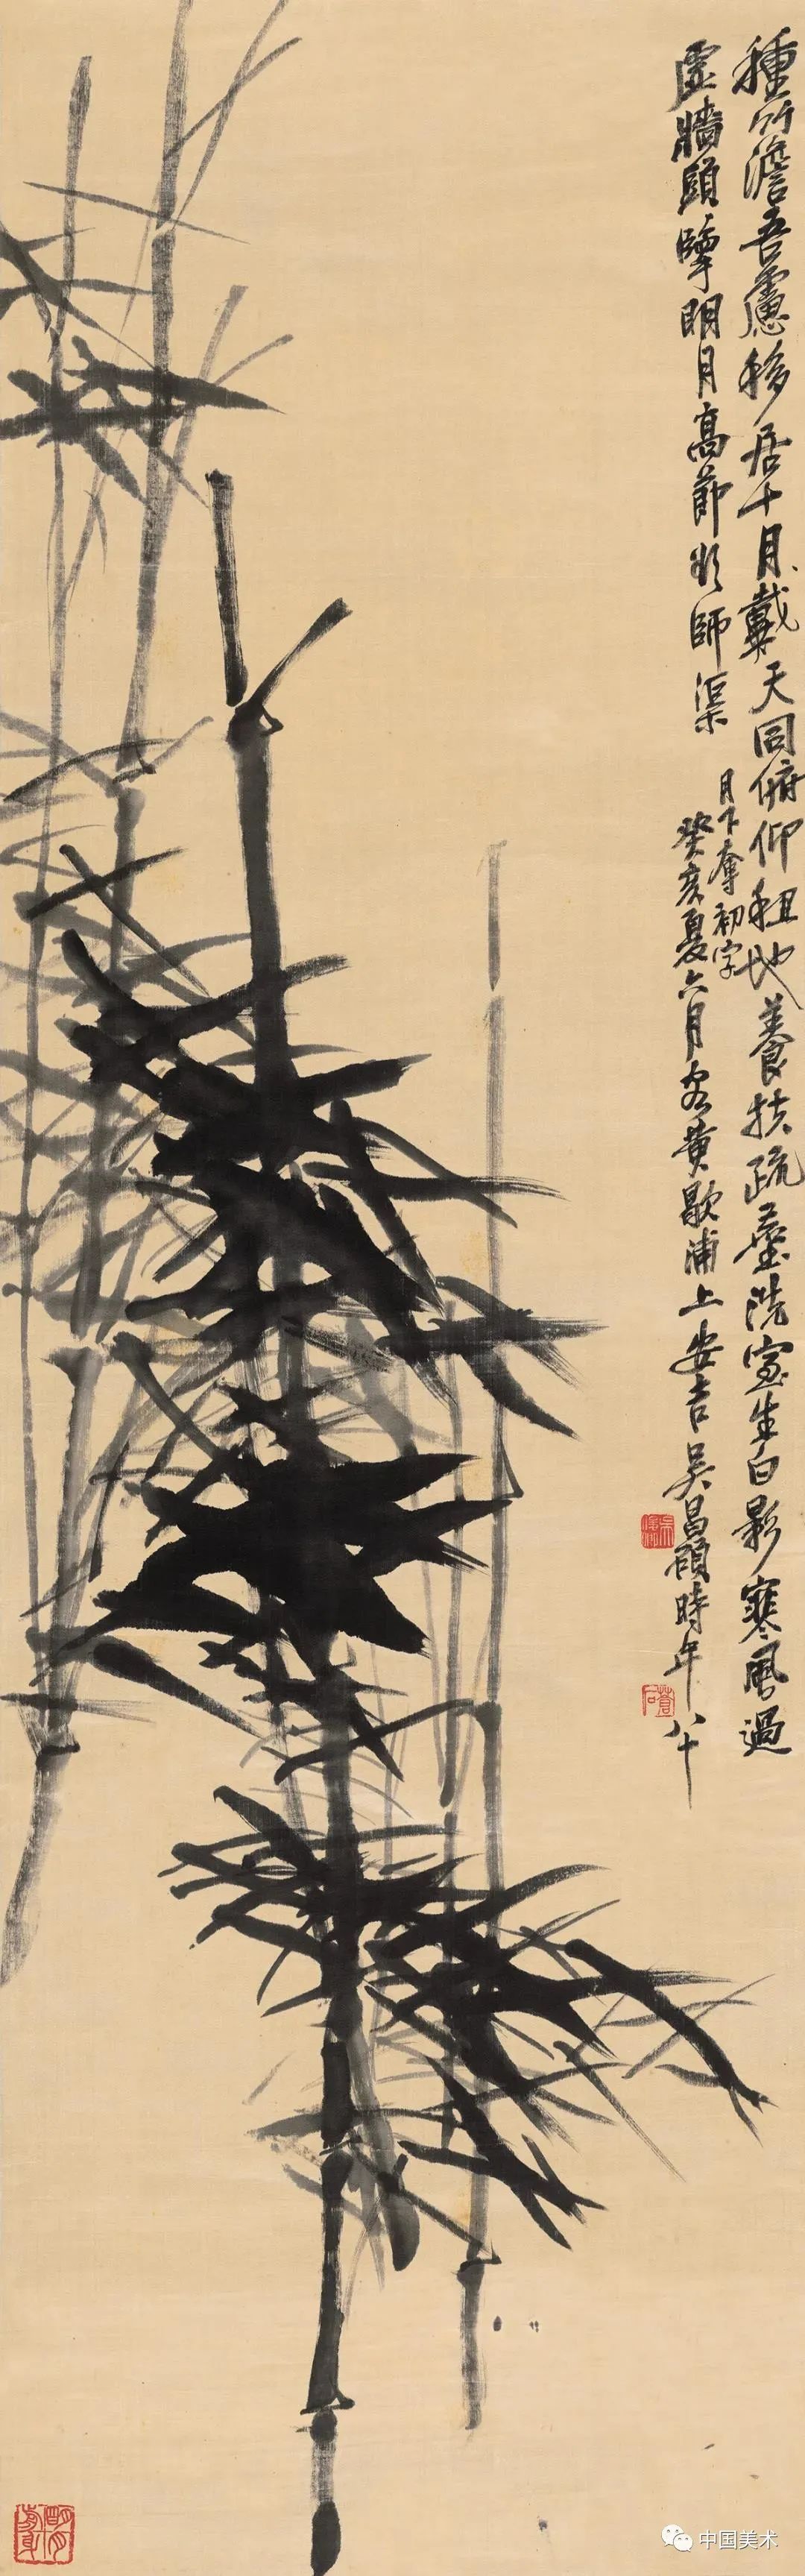 種竹澹吾慮移居十月戴天同俯仰租地養扶疏塵洗室生白影寒風過
虛牆頭擎明月高節水師渠
月下奪初字
癸亥夏六月客黄歇浦上安吉吳昌碩時年八十
中国美术